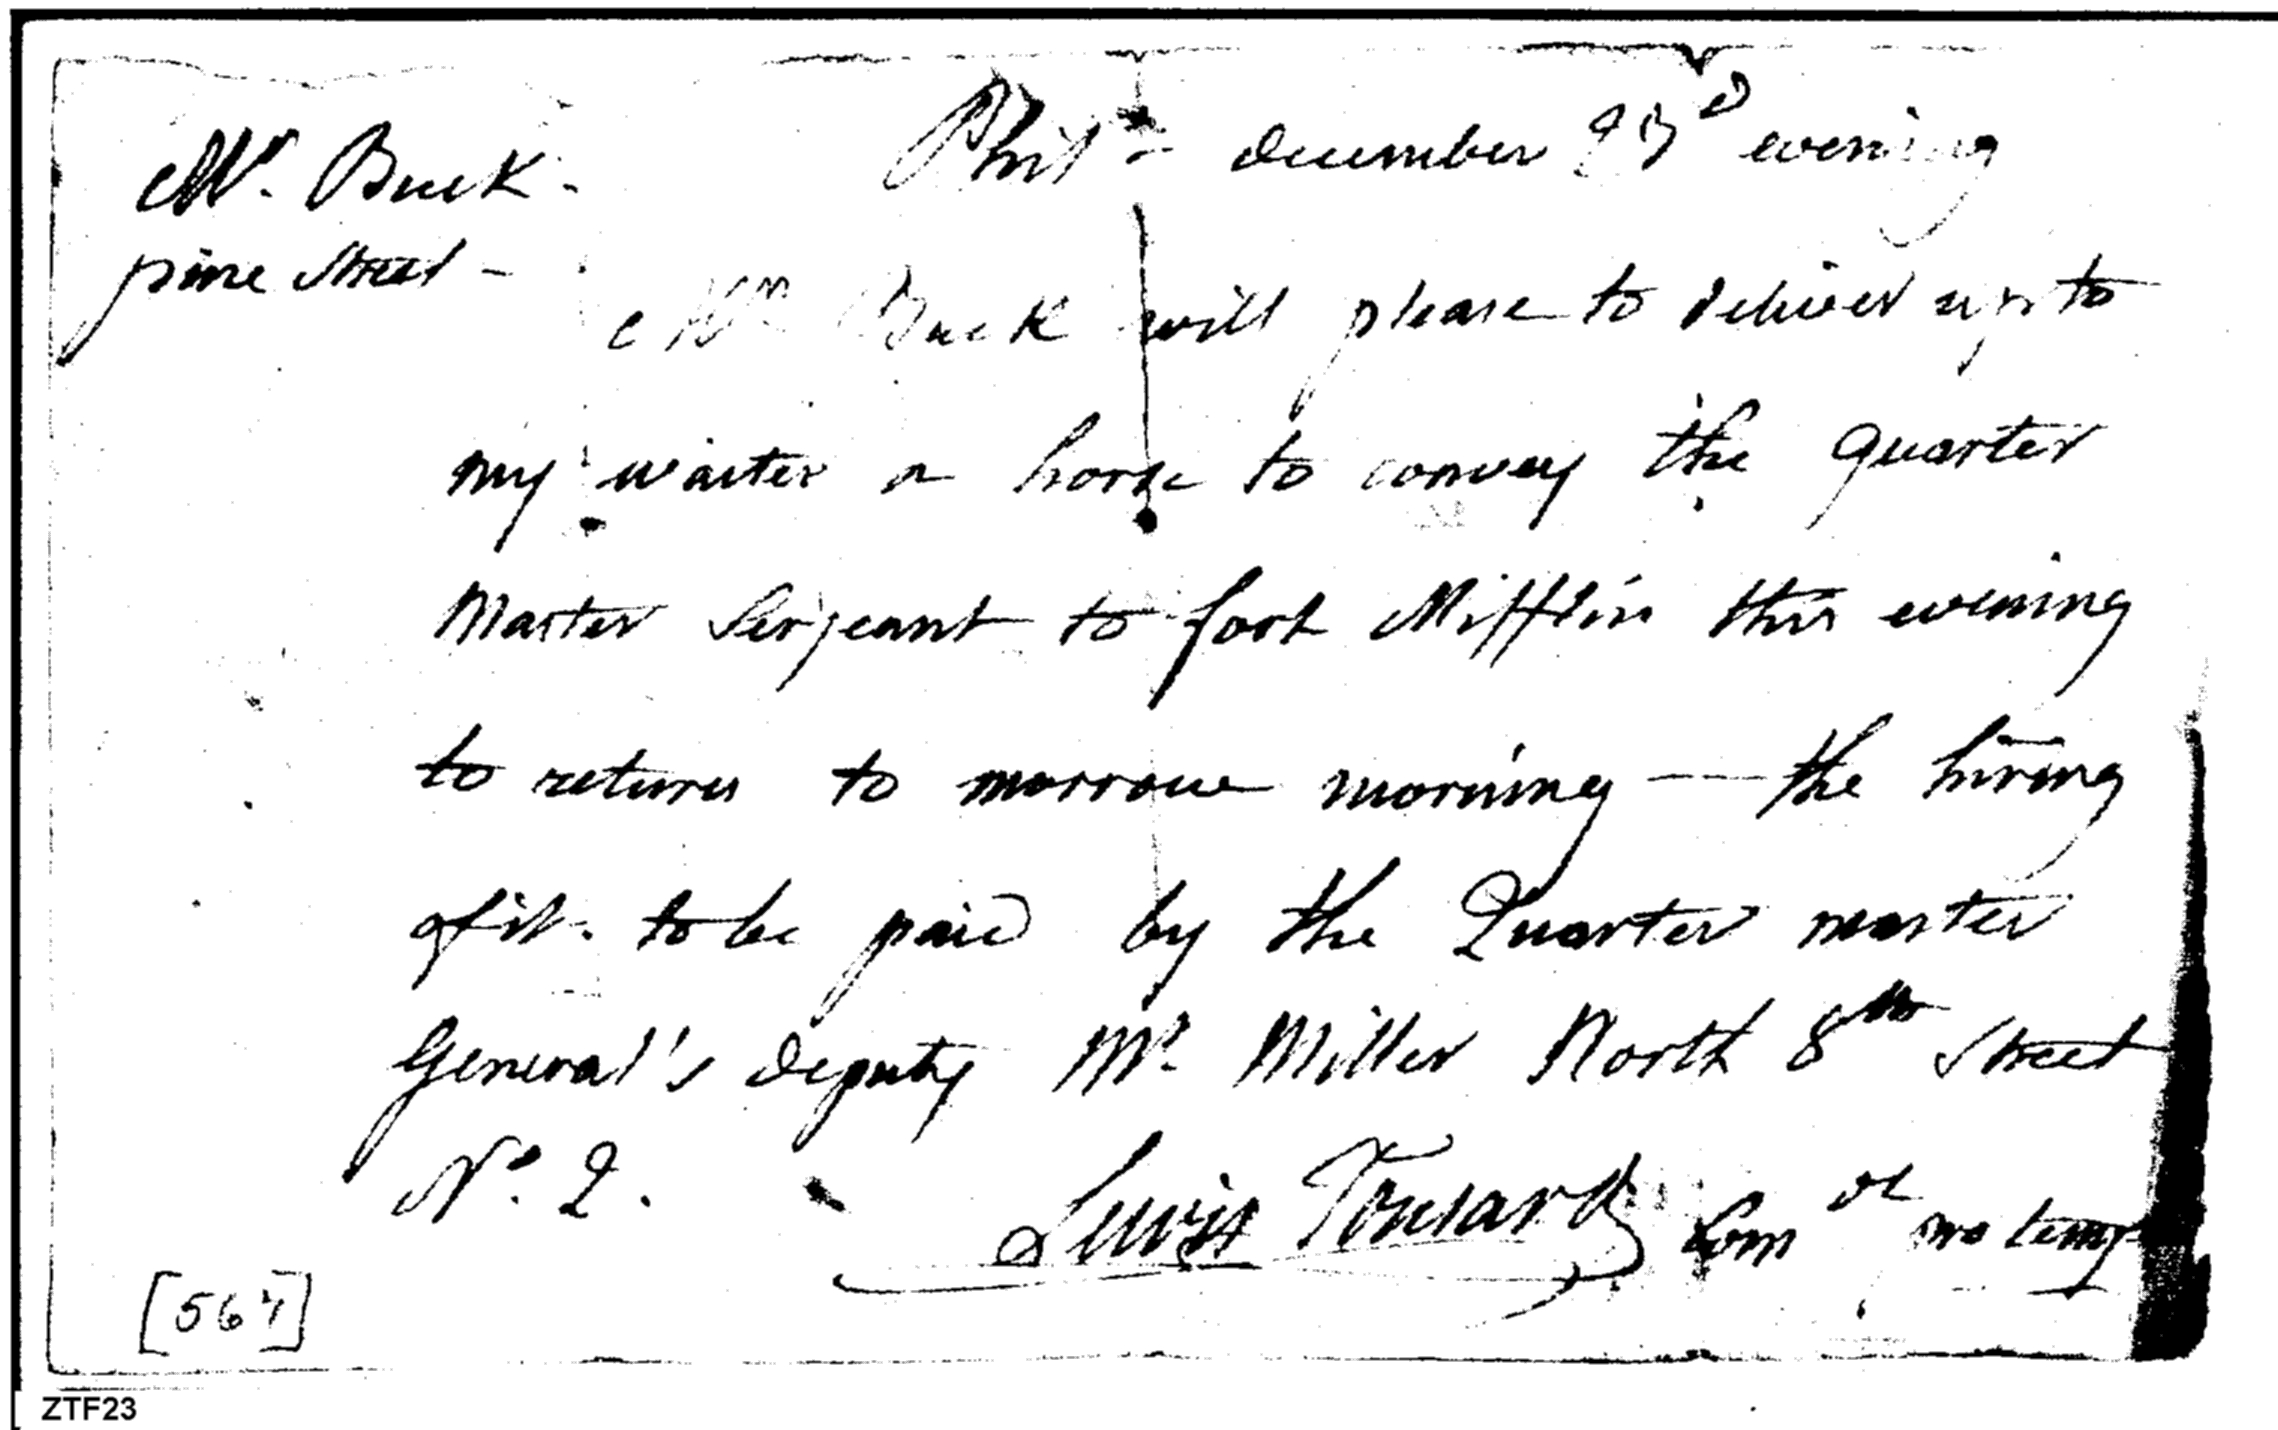 Mr. Buck.
pine Street -
Phila - december 23d evening
Mr Buck will please to deliver up to
my waiter a horse to convey the quarter
Master Serjeant to fort Mifflin this evening
to return to morrow morning — the hiring
of it. to be paid by the Quarter master
General's deputy Mr. Miller North 8th Street
No. 2.
Lewis Tousard Comdt pro temp
[564]
ZTF23